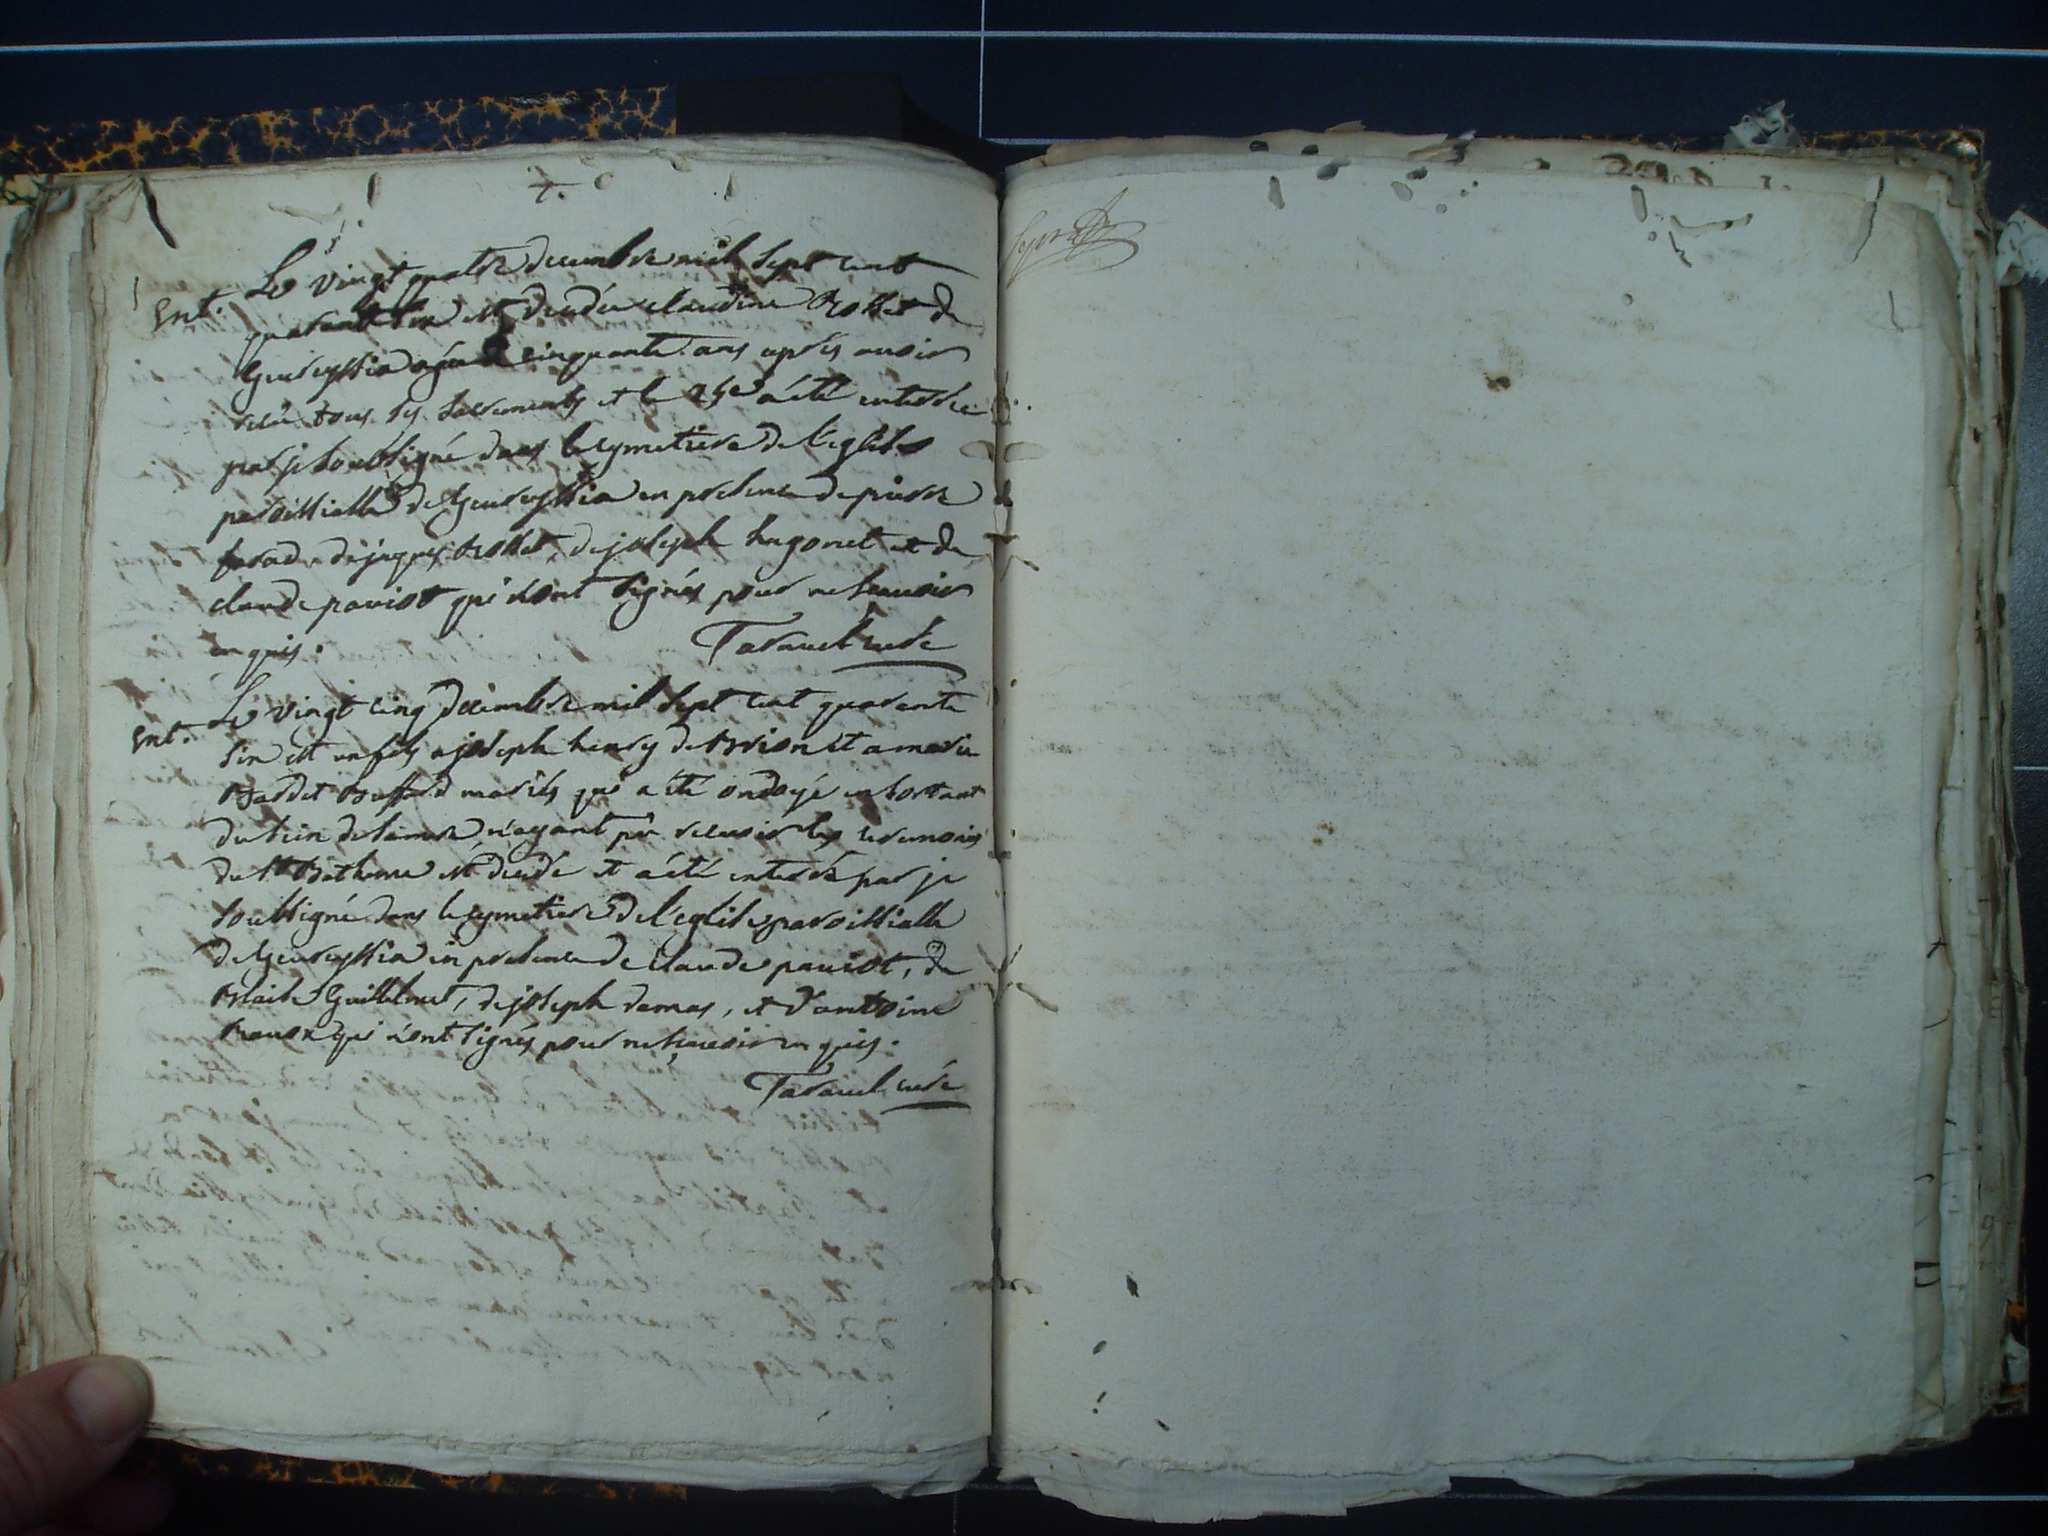 7.
Le vingt quatre decembre mil sept cent
Ent. quarante six est decedée claudine Rosset de
Gevreyssia agée de cinquante ans après avoir
recu tous ses sacrements et le 25e a été enterrée
par je soubsigné dans le cymetiere de l'eglise
paroissialle de Gevreyssia en presence de pierre
de jaques Rosset, de joseph hugonet et de
claude pauiot qui n'ont signés pour ne scauoir
en quis.
curé
Le vingt cinq decembre mil sept cent quarante
Ent. six est un fils a joseph henry de et a marie
mariés qui a été ondoyé en sortant
du sein de sa mere n'ayant pu recevoir les ceremonies
du St Batheme est decedé et a été enterré par je
soubsigné dans le cymetiere de l'eglise paroissialle
de Gevreyssia en presence de claude pauiot, de
Blaise Guillelmet, de joseph damas, et d'antoine
qui n'ont signés pour ne scavoir en quis.
curé